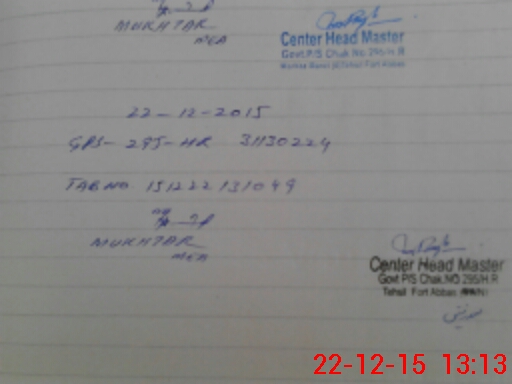 MUKHTAR
MEA
Center Head Master
Govt.P/S Chak No 295/H.R
22-12-2015
GPS- 295-HR 31130224
TAB NO. 151222131049
MUKHTAR
MEA
Center Head Master
Govt P/S Chak.NO 295/H.R
Tehsil Fort Abbas
22-12-15 13:13